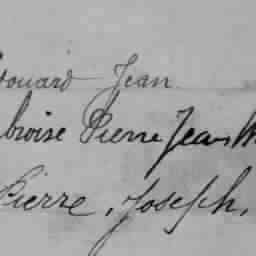 douard Jean
broise Pierre Jean M
Pierre, Joseph,